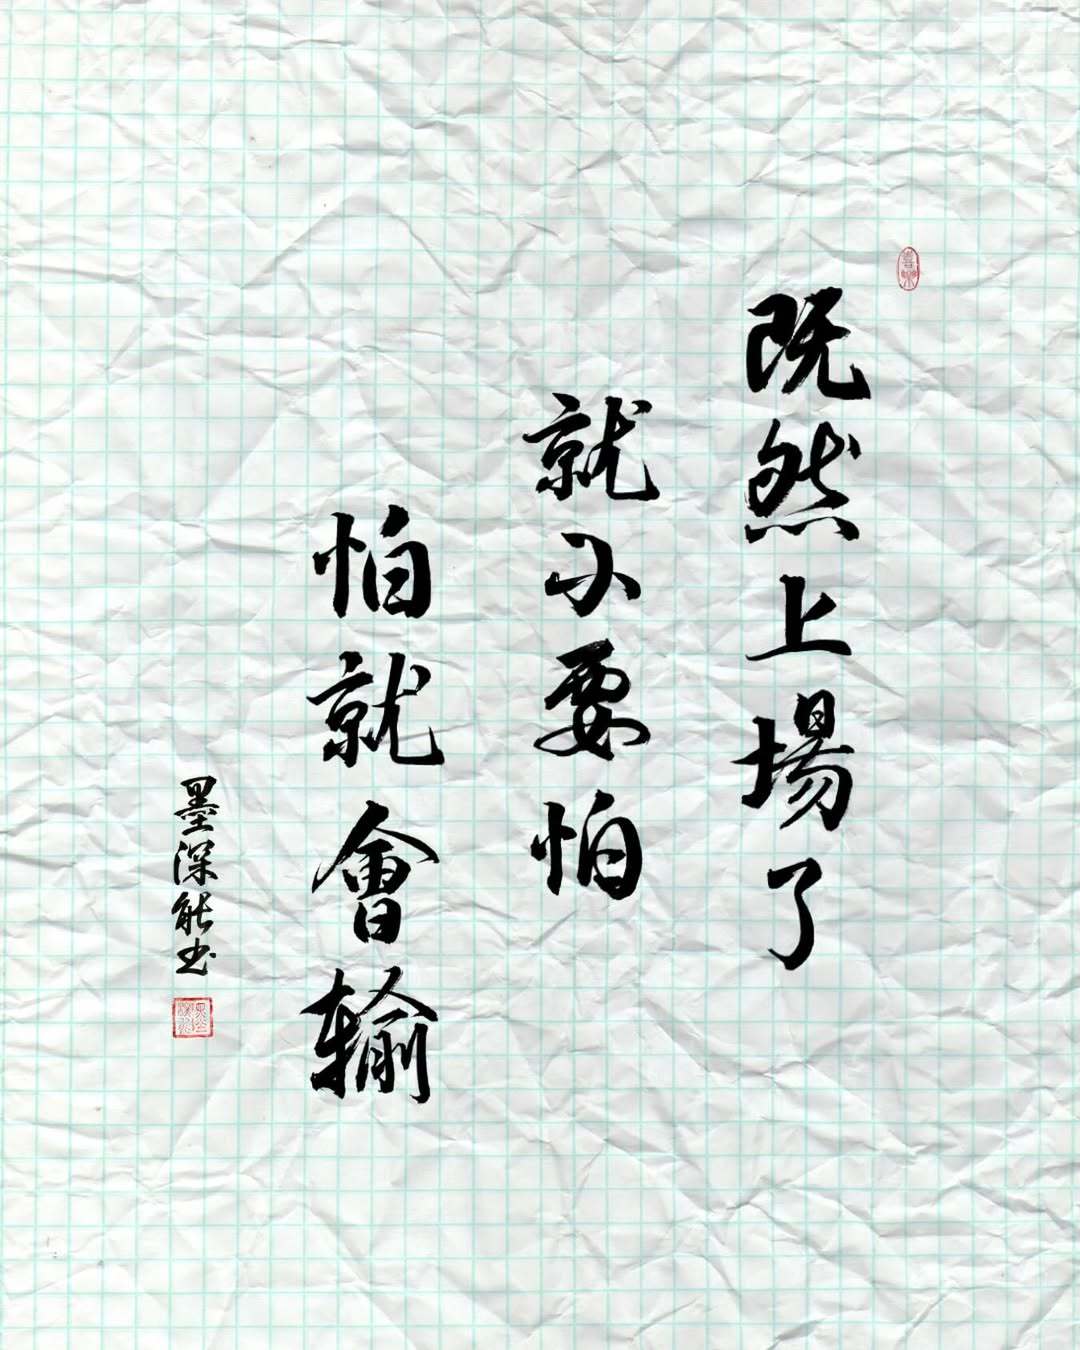 既然上場了
就不要怕
怕就會輸
墨深能书